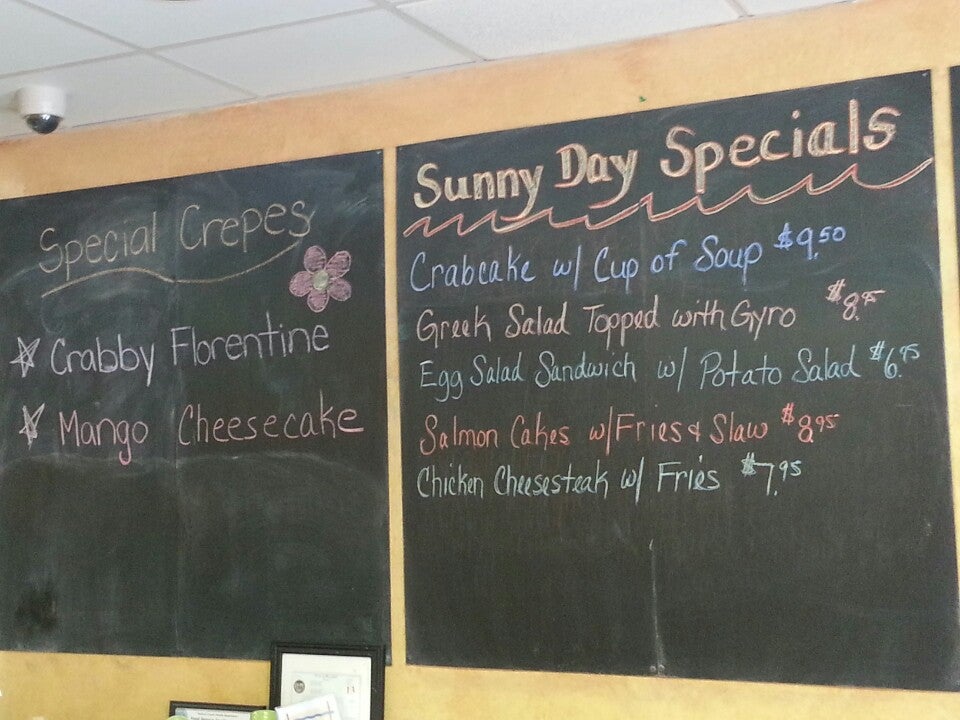 Special Crepes
Crabby Florentine
Mango Cheesecake
Sunny Day Specials
Crabcake w/ Cup of Soup $9.50
Greek Salad Topped with Gyro
Egg Salad Sandwich w/ Potato Salad $6.95
Salmon Cakes w/Fries & Slaw $8.95
Chicken Cheesesteak w/ Fries $7.95